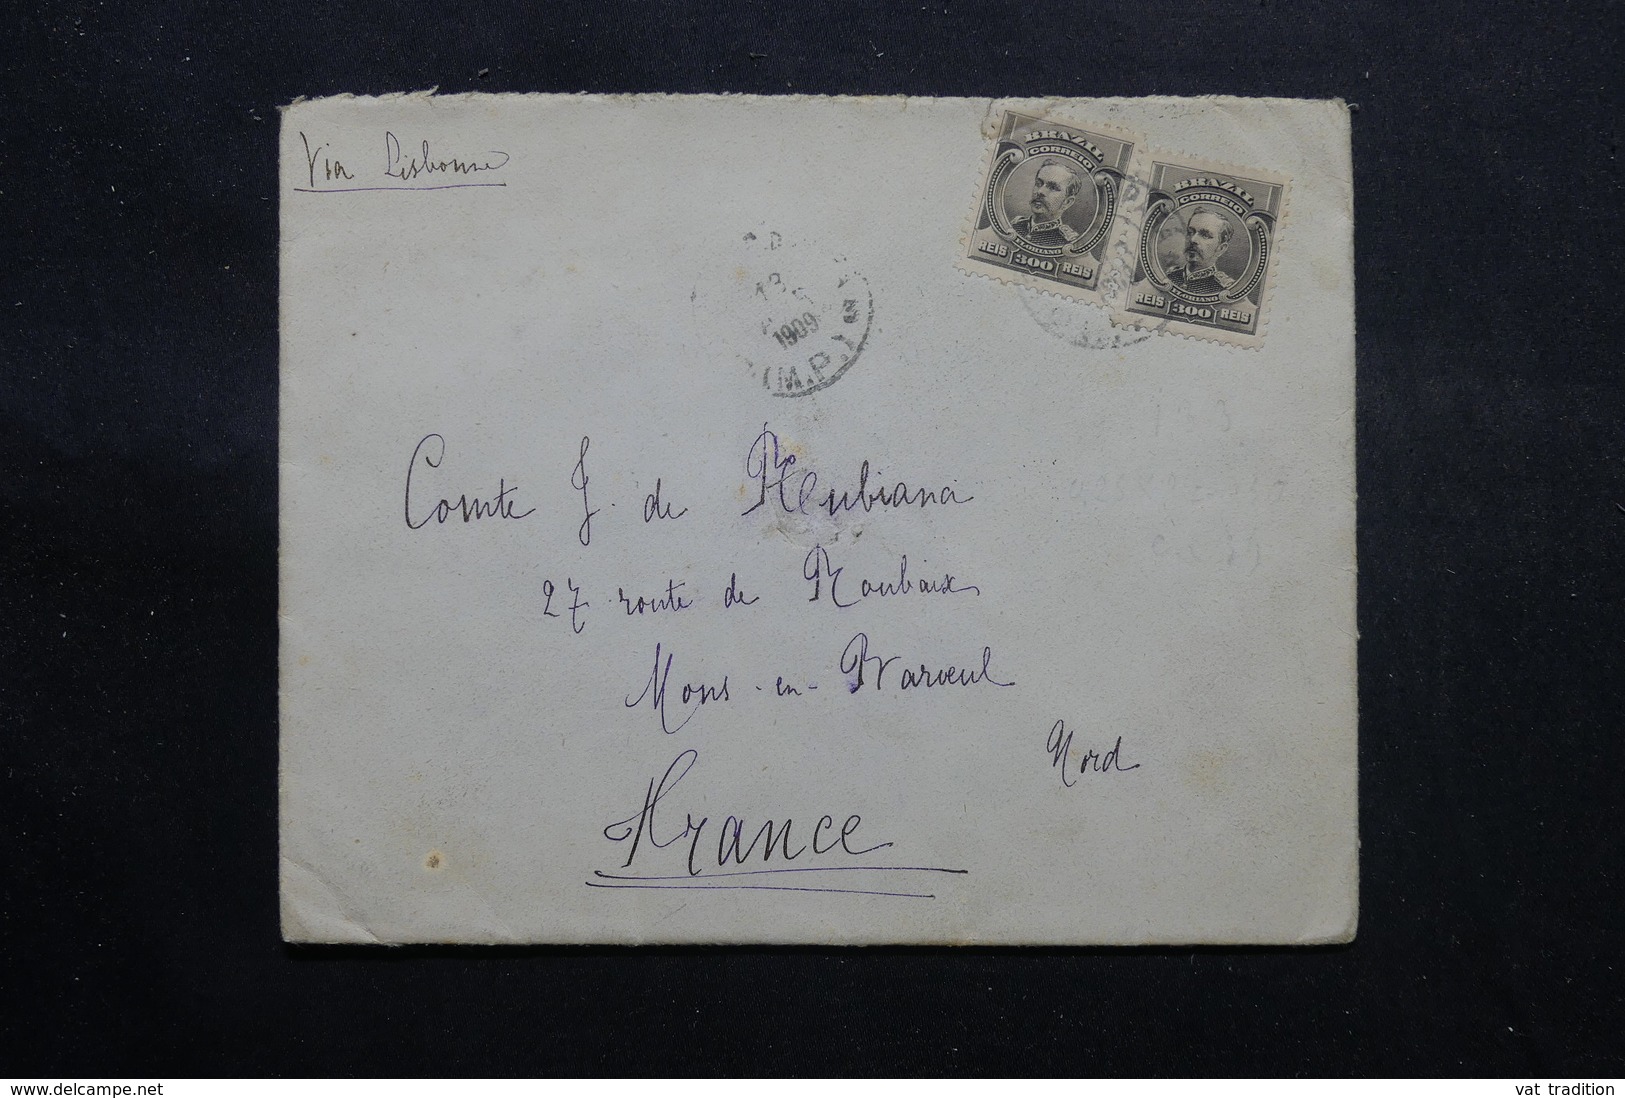 Via Lisbonne
BRAZIL
CORREIO
FLORIANO
REIS 300 REIS
BRAZIL
CORREIO
FLORIANO
REIS 300 REIS
13
1909
(M.P.)
Comte J. de
27 route de Roubaix
Mons-en-Barœul
Nord
France
www.delcampe.net
vat tradition